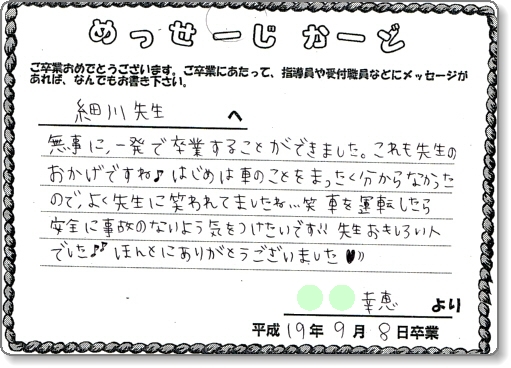 めっせーじかーど
ご卒業おめでとうございます。ご卒業にあたって、指導員や受付職員などにメッセージが
あれば、なんでもお書き下さい。
細川先生 へ
無事に、一発で卒業することができました。これも先生の
おかげですね♪はじめは車のことをまったく分からなかった
ので、よく先生に笑われてましたね…笑 車を運転したら
安全に事故のないよう気をつけたいです!! 先生おもしろい人
でした♪♪ ほんとにありがとうございました♥
幸恵 より
平成 19 年 9 月 8 日卒業